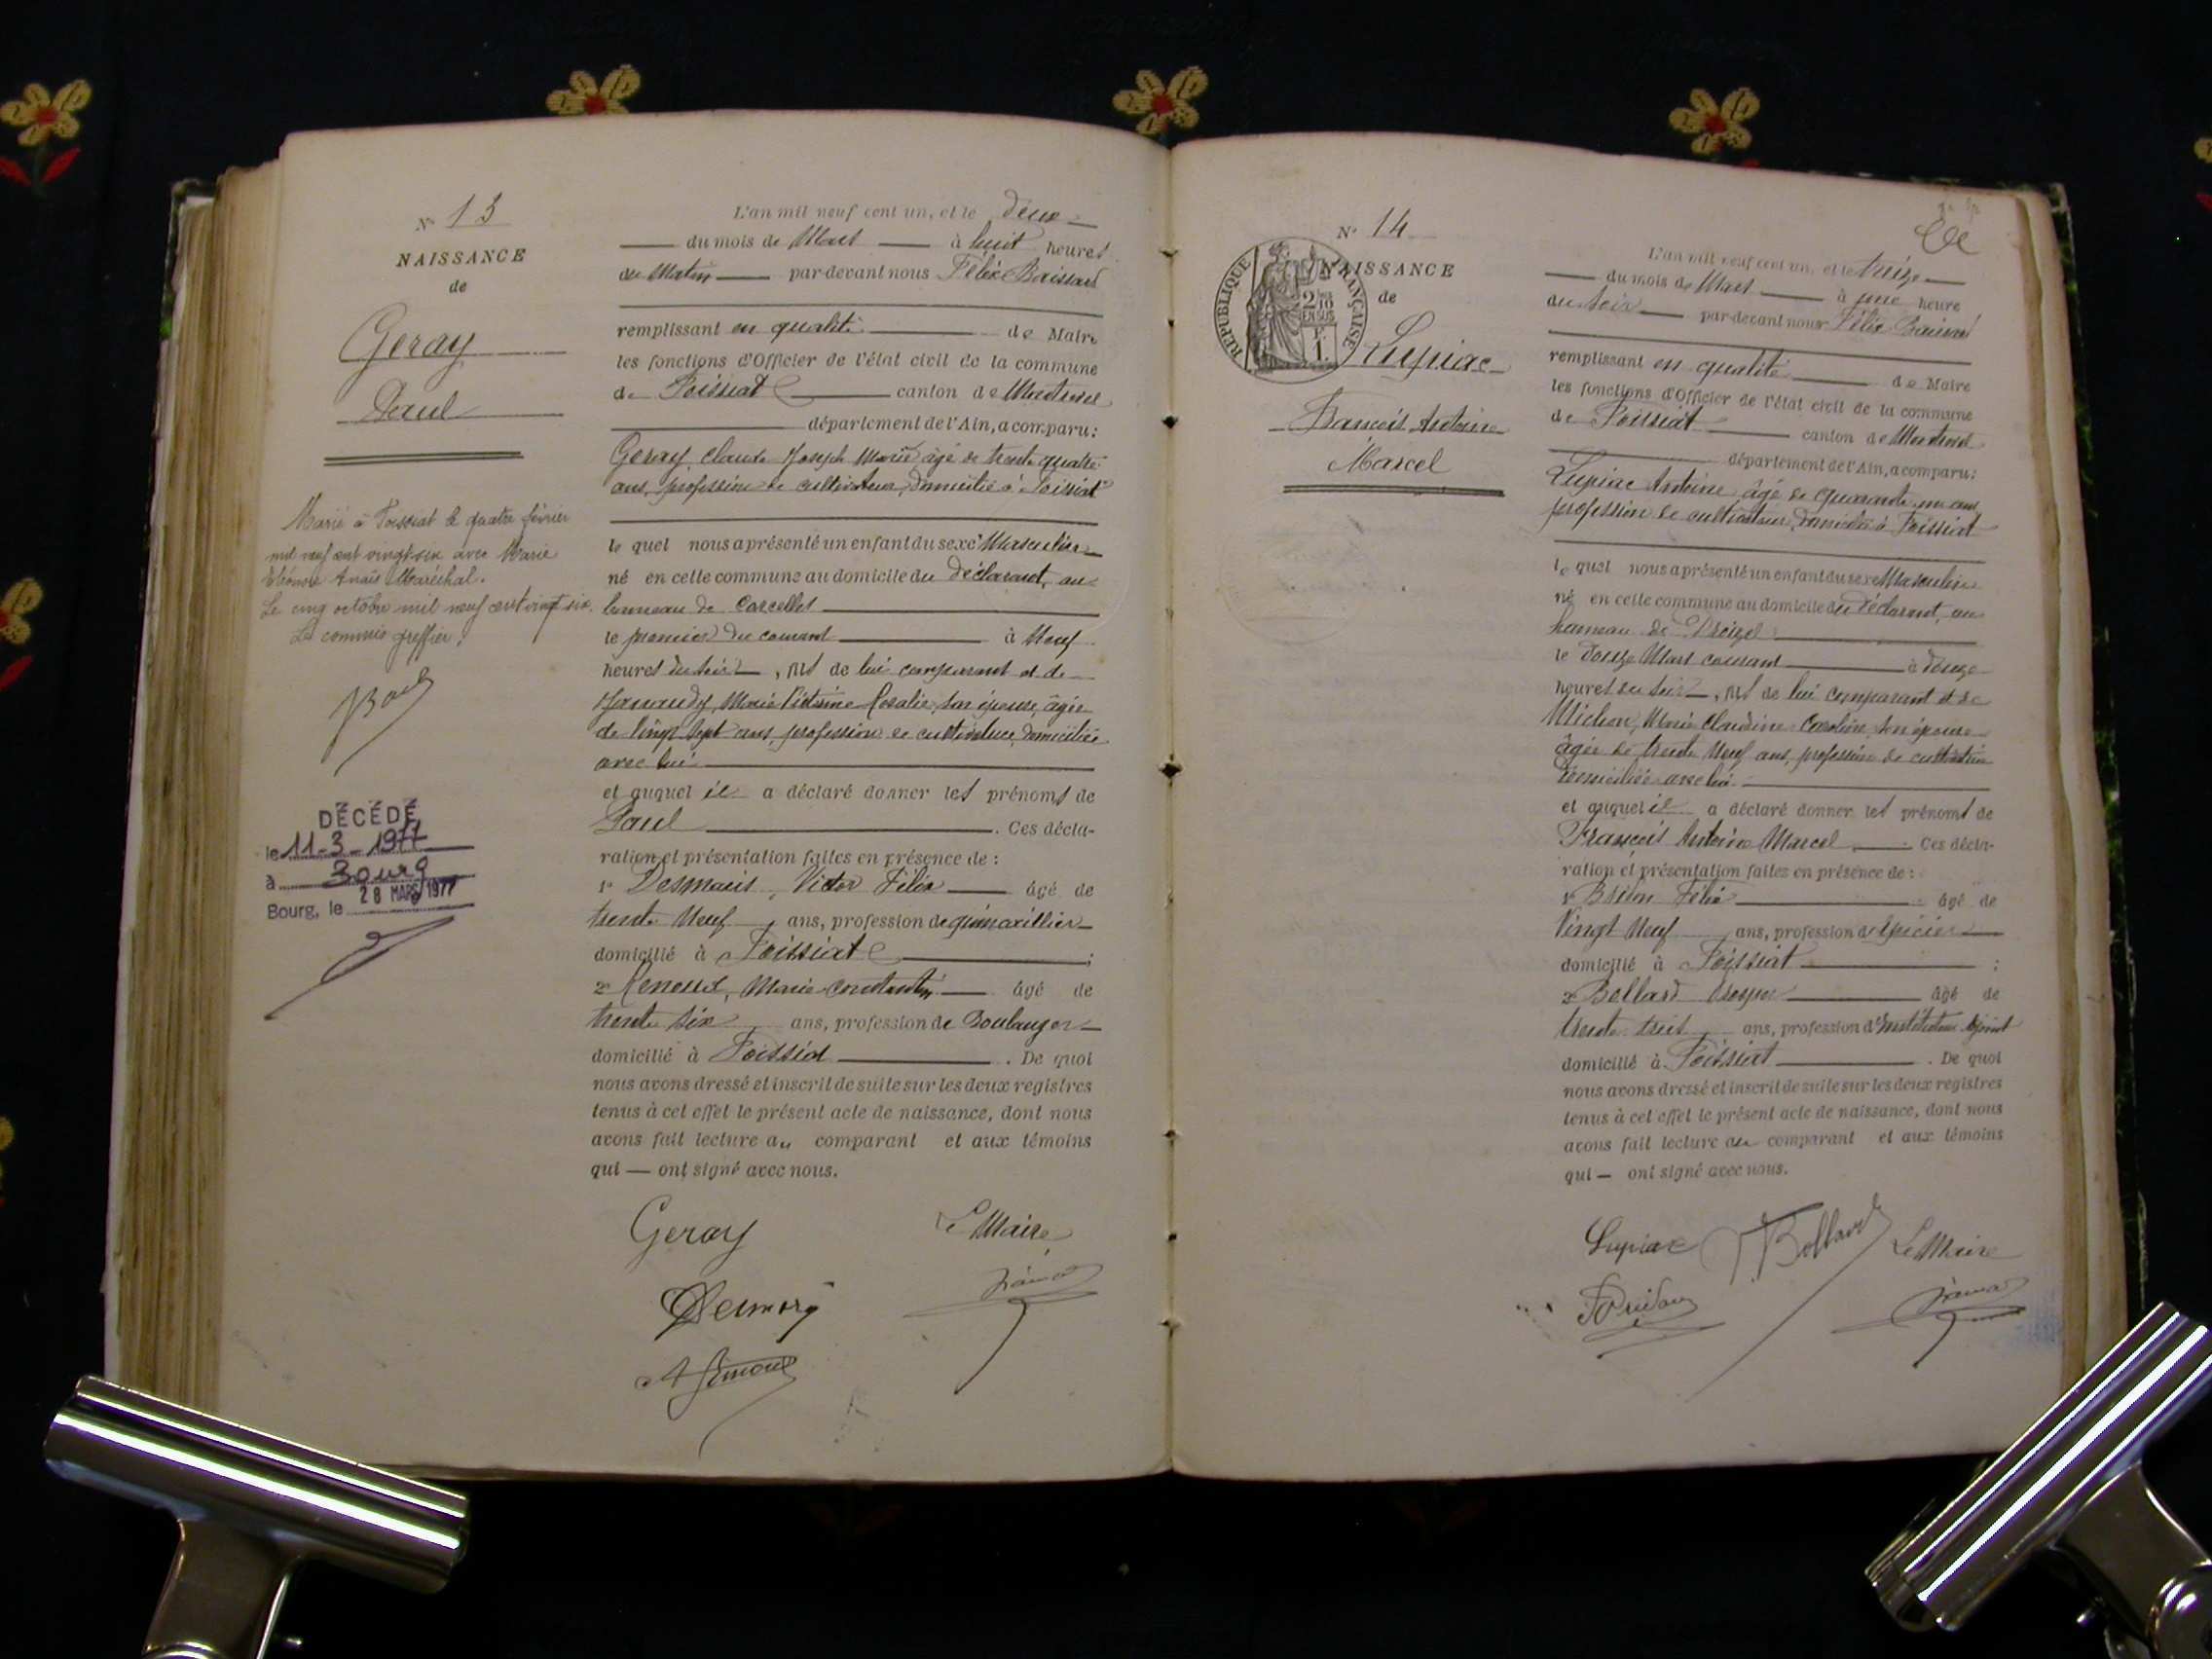 N° 13
NAISSANCE
de
Geray
Paul
Marié à Foissiat le quatre février
mil neuf cent vingt six avec Marie
Eléonore Anaïs Maréchal.
Le cinq octobre mil neuf cent vingt six.
Le commis greffier,
DÉCÉDÉ
le 11-3-1977
à Bourg
Bourg, le 28 MARS 1977
L'an mil neuf cent un, et le deux
du mois de Mars à huit heures
du Matin par-devant nous Félix
remplissant en qualité de Maire
les fonctions d'Officier de l'état civil de la commune
de Foissiat canton de Montrevel
département de l'Ain, a comparu:
Geray, Claude Joseph Marie âgé de trente quatre
ans, profession de cultivateur, domicilié à Foissiat
le quel nous a présenté un enfant du sexe Masculin
né en cette commune au domicile du déclarant, au
hameau de Corcelles
le premier du courant à Neuf
heures du soir, fils de lui comparant et de
Marie Rosalie, son épouse, âgée
de Vingt Sept ans, profession de cultivatrice, domiciliée
avec lui
et auquel il a déclaré donner les prénoms de
Paul. Ces décla-
ration et présentation faites en présence de :
1° Desmaris, Victor Félix âgé de
trente Neuf ans, profession de quincaillier
domicilié à Foissiat ;
2° Marie Constantin âgé de
trente six ans, profession de Boulanger
domicilié à Foissiat. De quoi
nous avons dressé et inscrit de suite sur les deux registres
tenus à cet effet le présent acte de naissance, dont nous
avons fait lecture au comparant et aux témoins
qui — ont signé avec nous.
Geray
Le Maire
N° 14
NAISSANCE
de
RÉPUBLIQUE FRANÇAISE
2/10 EN SUS
1 F.
Lupiac
François Antoine
Marcel
L'an mil neuf cent un, et le treize
du mois de Mars à une heure
du soir par-devant nous Félix
remplissant en qualité de Maire
les fonctions d'Officier de l'état civil de la commune
de Foissiat canton de Montrevel
département de l'Ain, a comparu:
Lupiac Antoine âgé de quarante un ans,
profession de cultivateur, domicilié à Foissiat
le quel nous a présenté un enfant du sexe Masculin
né en cette commune au domicile du déclarant, au
hameau de
le douze Mars courant à douze
heures du soir, fils de lui comparant et de
Michon, Marie Claudine Caroline, son épouse
âgée de trente Neuf ans, profession de cultivatrice
domiciliée avec lui
et auquel il a déclaré donner les prénoms de
François Antoine Marcel. Ces décla-
ration et présentation faites en présence de :
1° Félix âgé de
Vingt Neuf ans, profession d'épicier
domicilié à Foissiat ;
2° Bollard Prosper âgé de
trente trois ans, profession d'Instituteur adjoint
domicilié à Foissiat. De quoi
nous avons dressé et inscrit de suite sur les deux registres
tenus à cet effet le présent acte de naissance, dont nous
avons fait lecture au comparant et aux témoins
qui — ont signé avec nous.
Lupiac Bollard Le Maire